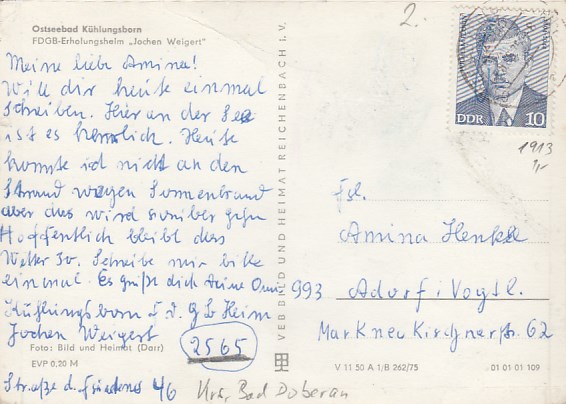 Ostseebad Kühlungsborn
FDGB-Erholungsheim „Jochen Weigert"
Meine liebe Amina!
Will dir heute einmal
schreiben. Hier an der See
ist es herrlich. Heute
konnte ich nicht an den
Strand wegen Sonnenbrand
aber das wird vorüber gehn
Hoffentlich bleibt das
Wetter so. Schreibe mir bitte
einmal. Es grüßt dich deine Omi
Kühlungsborn F.D.G.B Heim
Jochen Weigert
2565
Foto: Bild und Heimat (Darr)
EVP 0,20 M
Straße d. Friedens 46
Krs. Bad Doberan
VEB BILD UND HEIMAT REICHENBACH I. V.
2.
DDR 10
1913
Frl.
Amina Henkel
993 Adorf i. Vogtl.
Markneukirchnerstr. 62
V 11 50 A 1/B 262/75 01 01 01 109